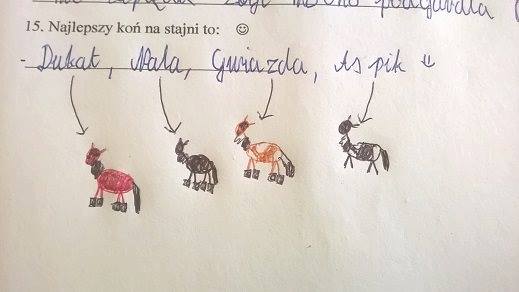 15. Najlepszy koń na stajni to: ☺
- Dukat, Mała, Gwiazda, As pik ☺